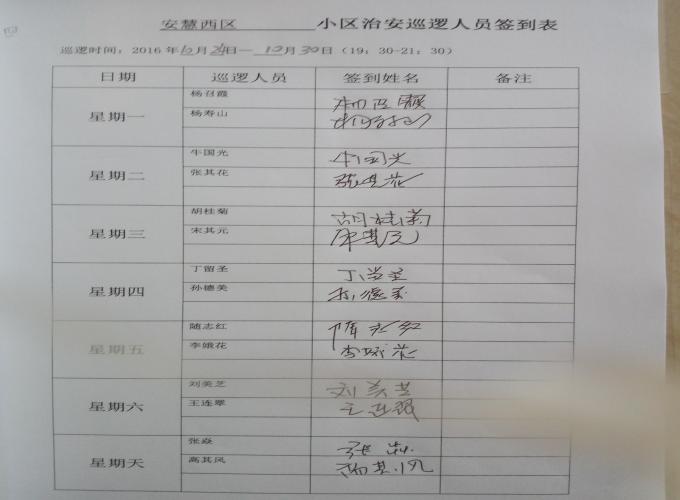 安慧西区 小区治安巡逻人员签到表
巡逻时间：2016年10月24日—10月30日（19：30-21：30）
日期 巡逻人员 签到姓名 备注
星期一 杨召霞 杨召霞
杨寿山 杨寿山
星期二 牛国光 牛国光
张其花 张其花
星期三 胡桂菊 胡桂菊
宋其元 宋其元
星期四 丁留圣 丁留圣
孙德美 孙德美
星期五 随志红 随志红
李娥花 李娥花
星期六 刘美芝 刘美芝
王连翠 王连翠
星期天 张焱 张焱
高其凤 高其凤